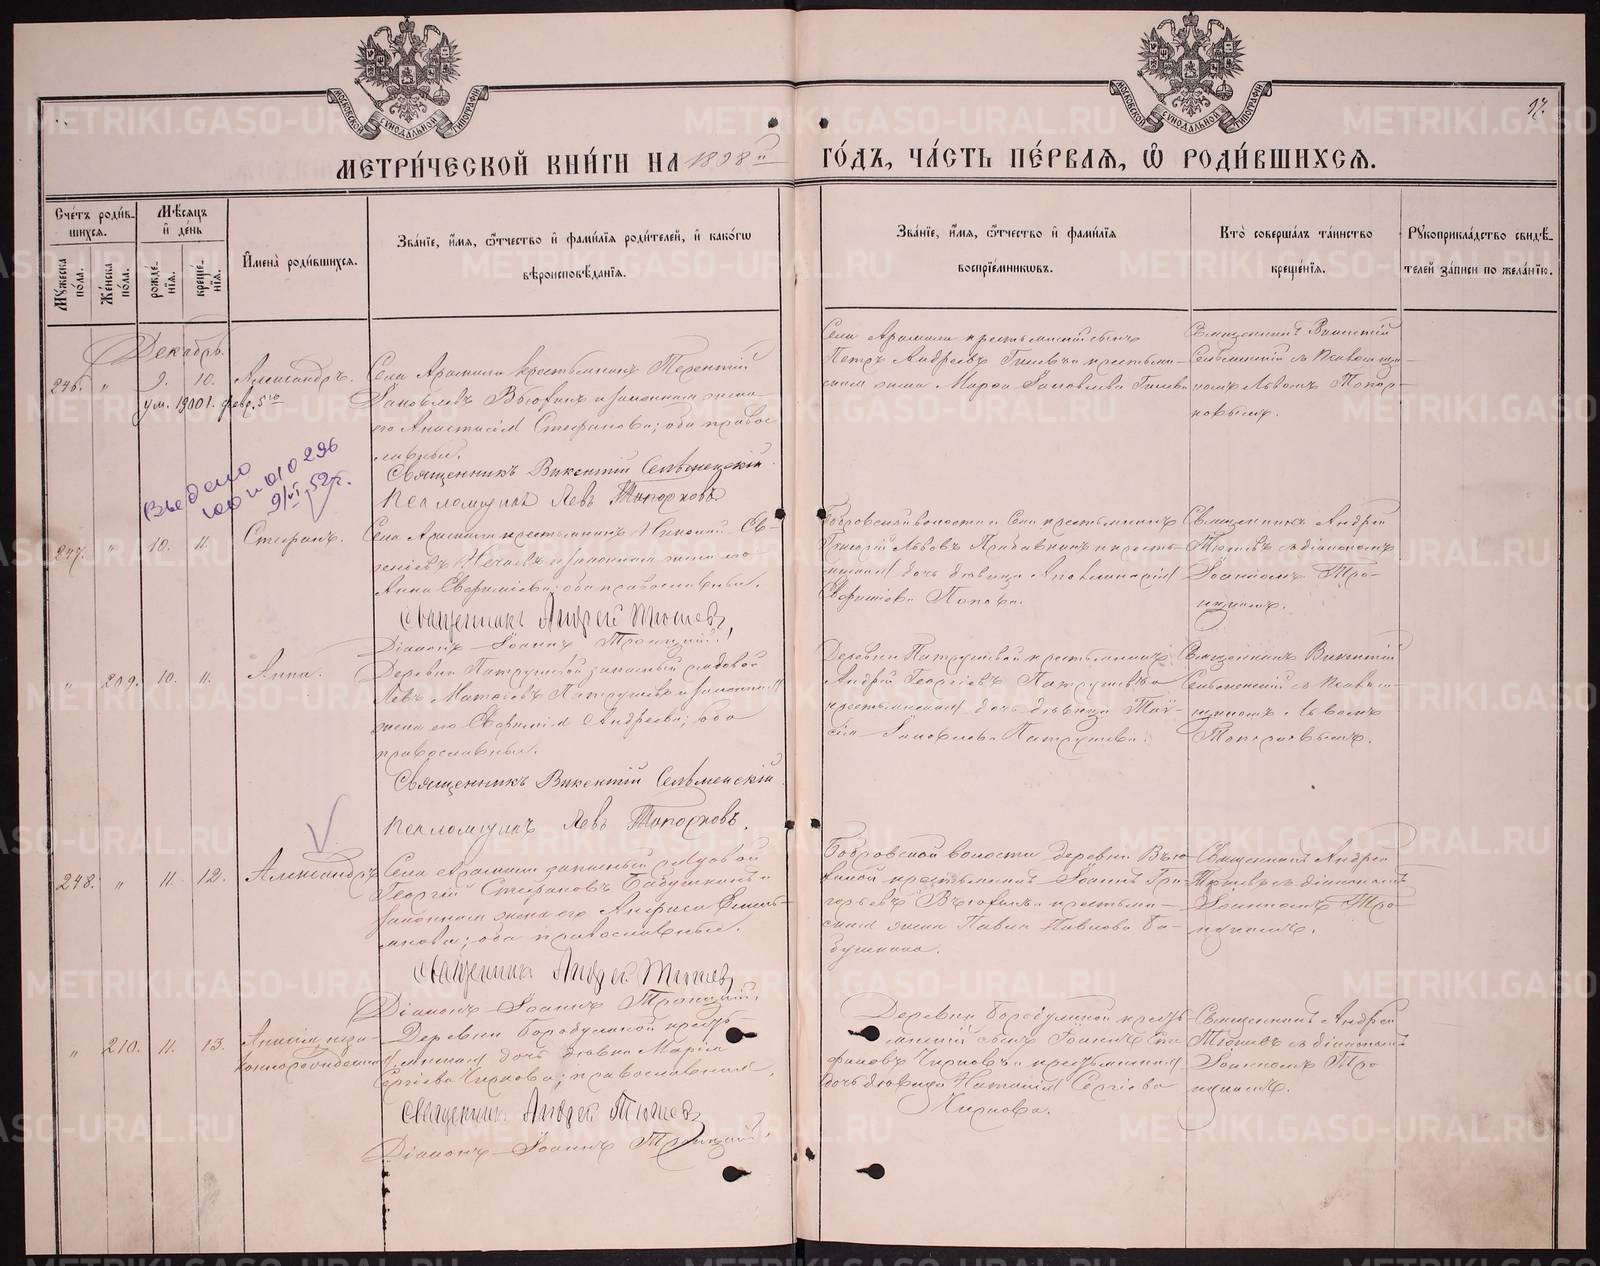 МОСКОВСКОЙ СУНОДАЛЬНОЙ ТИПОГРАФІИ
МОСКОВСКОЙ СУНОДАЛЬНОЙ ТИПОГРАФІИ
97
МЕТРИ́ЧЕСКОЙ КНИ́ГИ НА 1898 й ГО́ДЪ, ЧА́СТЬ ПЕ́РВАЯ, Ѡ РОДИ́ВШИХСЯ.
Сче́тъ роди́в-
шихся.
Мѣ́сяцъ
и҆ де́нь
Му́жеска по́ла.
Же́нска по́ла.
рожде-
нїя.
креще́-
нїя.
И҆мена̀ роди́вшихся.
Зва́нїе, и҆́мя, ѻ҆́тчество и҆ фами́лїя роди́телей, и҆ како́гѡ
вѣроисповѣ́данїя.
Зва́нїе, и҆́мя, ѻ҆́тчество и҆ фами́лїя
воспрїе́мниковъ.
Кто̀ соверша́лъ та́инство
креще́нїя.
Рꙋкоприкла́дство свидѣ́-
телей за́писи по жела́нїю.
Декабрь.
246. " 9. 10. Александръ.
ум. 1900 г. февр. 5го
Села Арамили крестьянинъ Терентій
Яковлевъ Вьюхинъ и законная жена
его Анастасія Стефанова; оба правос-
лавные.
Священникъ Викентій Сельменскій
Псаломщикъ Левъ Топорковъ
Села Арамили крестьянскій сынъ
Петръ Андреевъ и крестьян-
ская жена Марфа Яковлева
Священникъ Викентій
Сельменскій съ Псаломщи-
комъ Львомъ Топор-
ковымъ.
Введено
9/VI 52 г.
247. " 10. 11. Стефанъ.
Села Арамили крестьянинъ
и законная жена его
Анна Евфимова; оба православные.
Священникъ Андрей Тюшевъ
Діаконъ Іоаннъ Троицкій.
Бобровской волости и Села крестьянинъ
Григорій Львовъ и кресть-
янская дочь дѣвица Аполлинарія
Евфимова Попова.
Священникъ Андрей
Тюшевъ съ діакономъ
Іоанномъ Тро-
ицкимъ.
" 209. 10. 11. Анна.
Деревни Патрушевой запасный рядовой
Левъ Матѳеевъ Патрушевъ и законная
жена его Евфимія Андреева; оба
православные.
Священникъ Викентій Сельменскій
Псаломщикъ Левъ Топорковъ.
Деревни Патрушевой крестьянинъ
Андрей Георгіевъ Патрушевъ и
крестьянская дочь дѣвица Таи-
сія Яковлева Патрушева.
Священникъ Викентій
Сельменскій съ Псалом-
щикомъ Львомъ
Топорковымъ.
248. " 11. 12. Александръ
Села Арамили запасный рядовой
Георгій Стефановъ Бабушкинъ и
законная жена его Анфиса Емель-
янова; оба православные.
Священникъ Андрей Тюшевъ
Діаконъ Іоаннъ Троицкій.
Бобровской волости деревни Вью-
хиной крестьянинъ Іоаннъ Гри-
горьевъ Вьюхинъ и крестьян-
ская жена Павла Павлова Ба-
бушкина.
Священникъ Андрей
Тюшевъ съ діакономъ
Іоанномъ Тро-
ицкимъ.
" 210. 11. 13. Анисія неза-
коннорожденная
Деревни Бородулиной кресть-
янская дочь дѣвка Марія
Сергіева Чиркова; православная.
Священникъ Андрей Тюшевъ
Діаконъ Іоаннъ Троицкій.
Деревни Бородулиной кресть-
янскій сынъ Іоаннъ Сте-
фановъ Чирковъ и крестьянская
дочь дѣвица Наталія Сергіева
Чиркова.
Священникъ Андрей
Тюшевъ съ діакономъ
Іоанномъ Тро-
ицкимъ.
METRIKI.GASO-URAL.RU